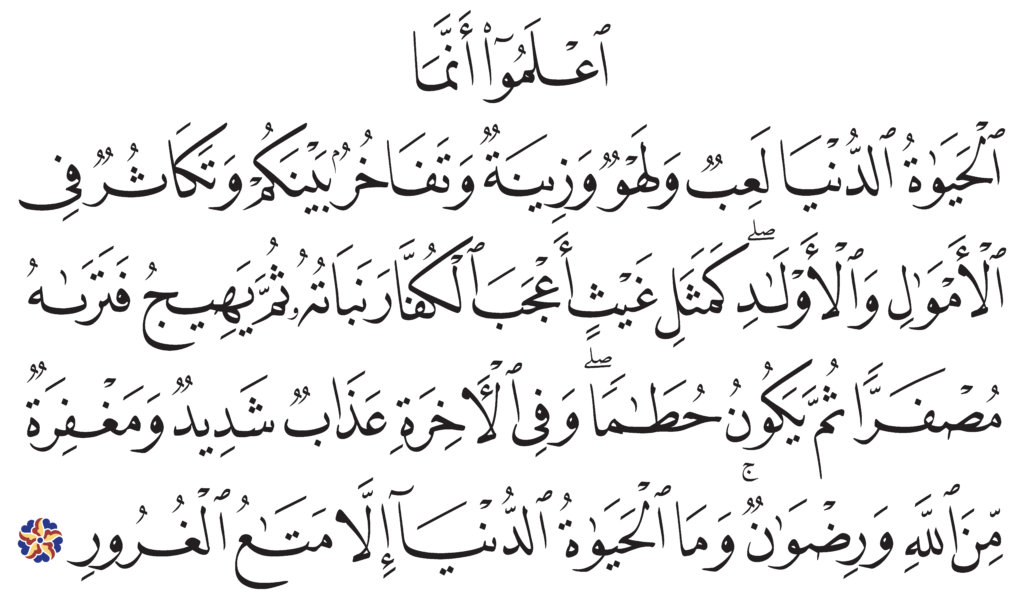 ٱعۡلَمُوٓاْ أَنَّمَا
ٱلۡحَيَوٰةُ ٱلدُّنۡيَا لَعِبٞ وَلَهۡوٞ وَزِينَةٞ وَتَفَاخُرُۢ بَيۡنَكُمۡ وَتَكَاثُرٞ فِي
ٱلۡأَمۡوَٰلِ وَٱلۡأَوۡلَٰدِۖ كَمَثَلِ غَيۡثٍ أَعۡجَبَ ٱلۡكُفَّارَ نَبَاتُهُۥ ثُمَّ يَهِيجُ فَتَرَىٰهُ
مُصۡفَرّٗا ثُمَّ يَكُونُ حُطَٰمٗاۖ وَفِي ٱلۡأٓخِرَةِ عَذَابٞ شَدِيدٞ وَمَغۡفِرَةٞ
مِّنَ ٱللَّهِ وَرِضۡوَٰنٞۚ وَمَا ٱلۡحَيَوٰةُ ٱلدُّنۡيَآ إِلَّا مَتَٰعُ ٱلۡغُرُورِ